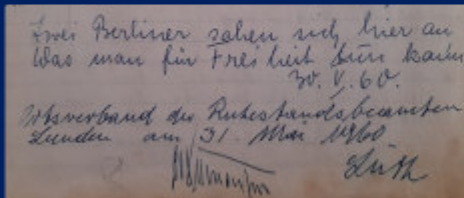 Zwei Berliner sahen sich hier an
Was man für Freiheit tun kann
30. V. 60.
Ortsverband der Ruhestandsbeamten
Lunden am 31. Mai 1960
Lüth